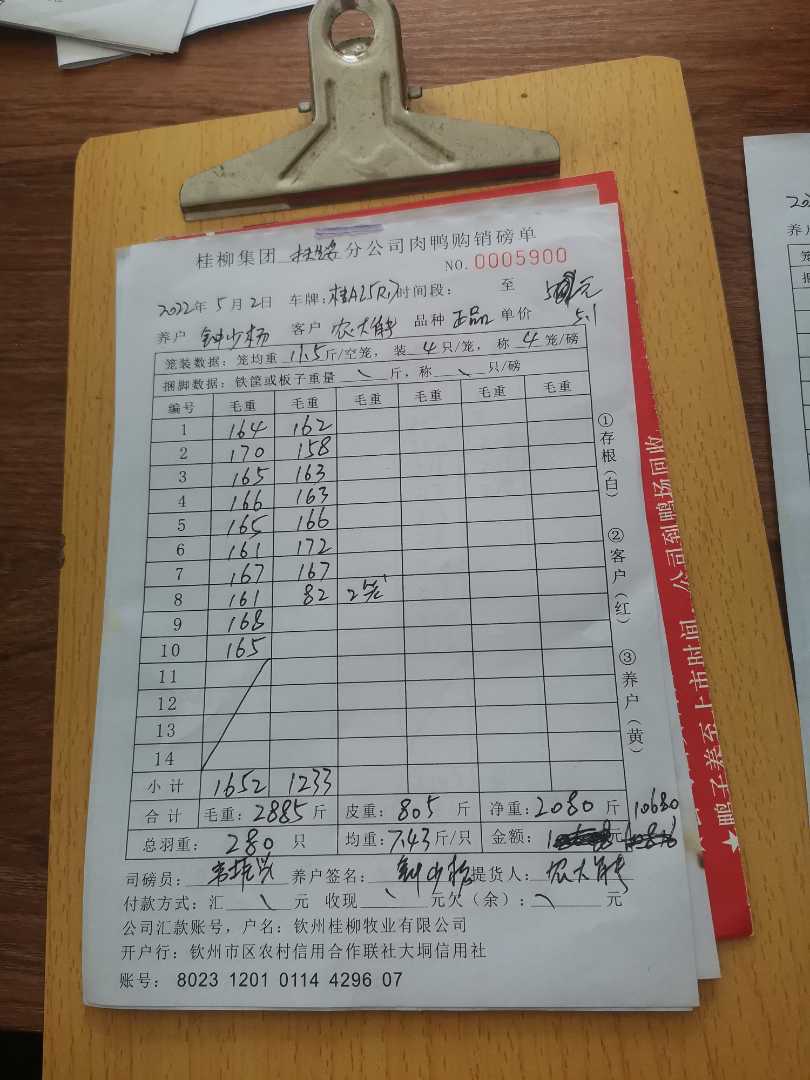 桂柳集团 扶绥 分公司肉鸭购销磅单
NO.0005900
2022年5月2日 车牌：桂A25R17时间段： 至 元
养户 钟少杨 客户 农大解 品种 正品 单价 5.1
笼装数据：笼均重 11.5 斤/空笼，装 4 只/笼，称 4 笼/磅
捆脚数据：铁筐或板子重量 \ 斤，称 \ 只/磅
编号 毛重 毛重 毛重 毛重 毛重 毛重
1 164 162
2 170 158
3 165 163
4 166 163
5 165 166
6 161 172
7 167 167
8 161 82 2笼
9 168
10 165
11
12
13
14
小计 1652 1233
合计 毛重：2885斤 皮重：805 斤 净重：2080 斤 10680
总羽重： 280 只 均重：7.43斤/只 金额： 元
司磅员： 养户签名：钟少杨 提货人：农大解
付款方式：汇 \ 元 收现 \ 元欠（余）： \ 元
公司汇款账号，户名：钦州桂柳牧业有限公司
开户行：钦州市区农村信用合作联社大垌信用社
账号： 8023 1201 0114 4296 07
①存根（白） ②客户（红） ③养户（黄）
★鸭子养至上市时间，公司到鸭场回收
养户